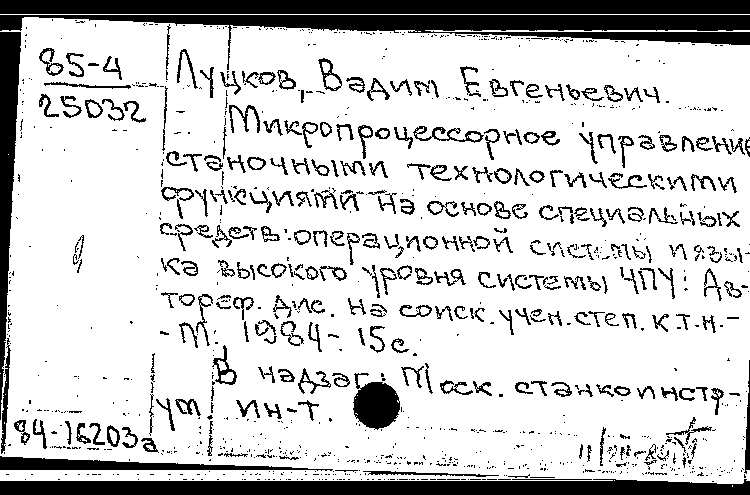 85-4
25032
Луцков, Вадим Евгеньевич.
Микропроцессорное управление
станочными технологическими
функциями на основе специальных
средств: операционной системы и язы-
ка высокого уровня системы ЧПУ: Ав-
тореф. дис. на соиск. учен. степ. к.т.н. -
- М., 1984.- 15 с.
В надзаг.: Моск. станкоинстр-
ум. ин-т.
84-16203а